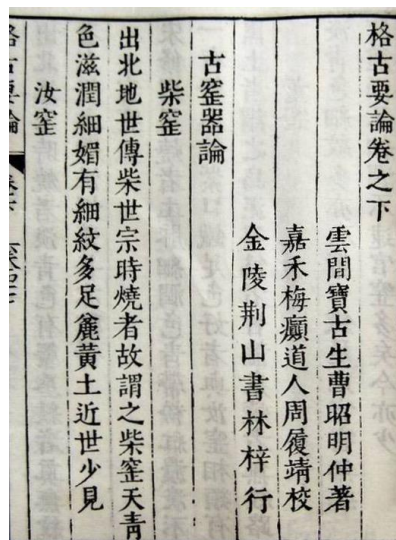 格古要論卷之下
雲間寶古生曹昭明仲著
嘉禾梅癲道人周履靖校
金陵荆山書林梓行
古窑器論
柴窑
出北地世傳柴世宗時燒者故謂之柴窑天青
色滋潤細媚有細紋多足麄黃土近世少見
汝窑
格古要論